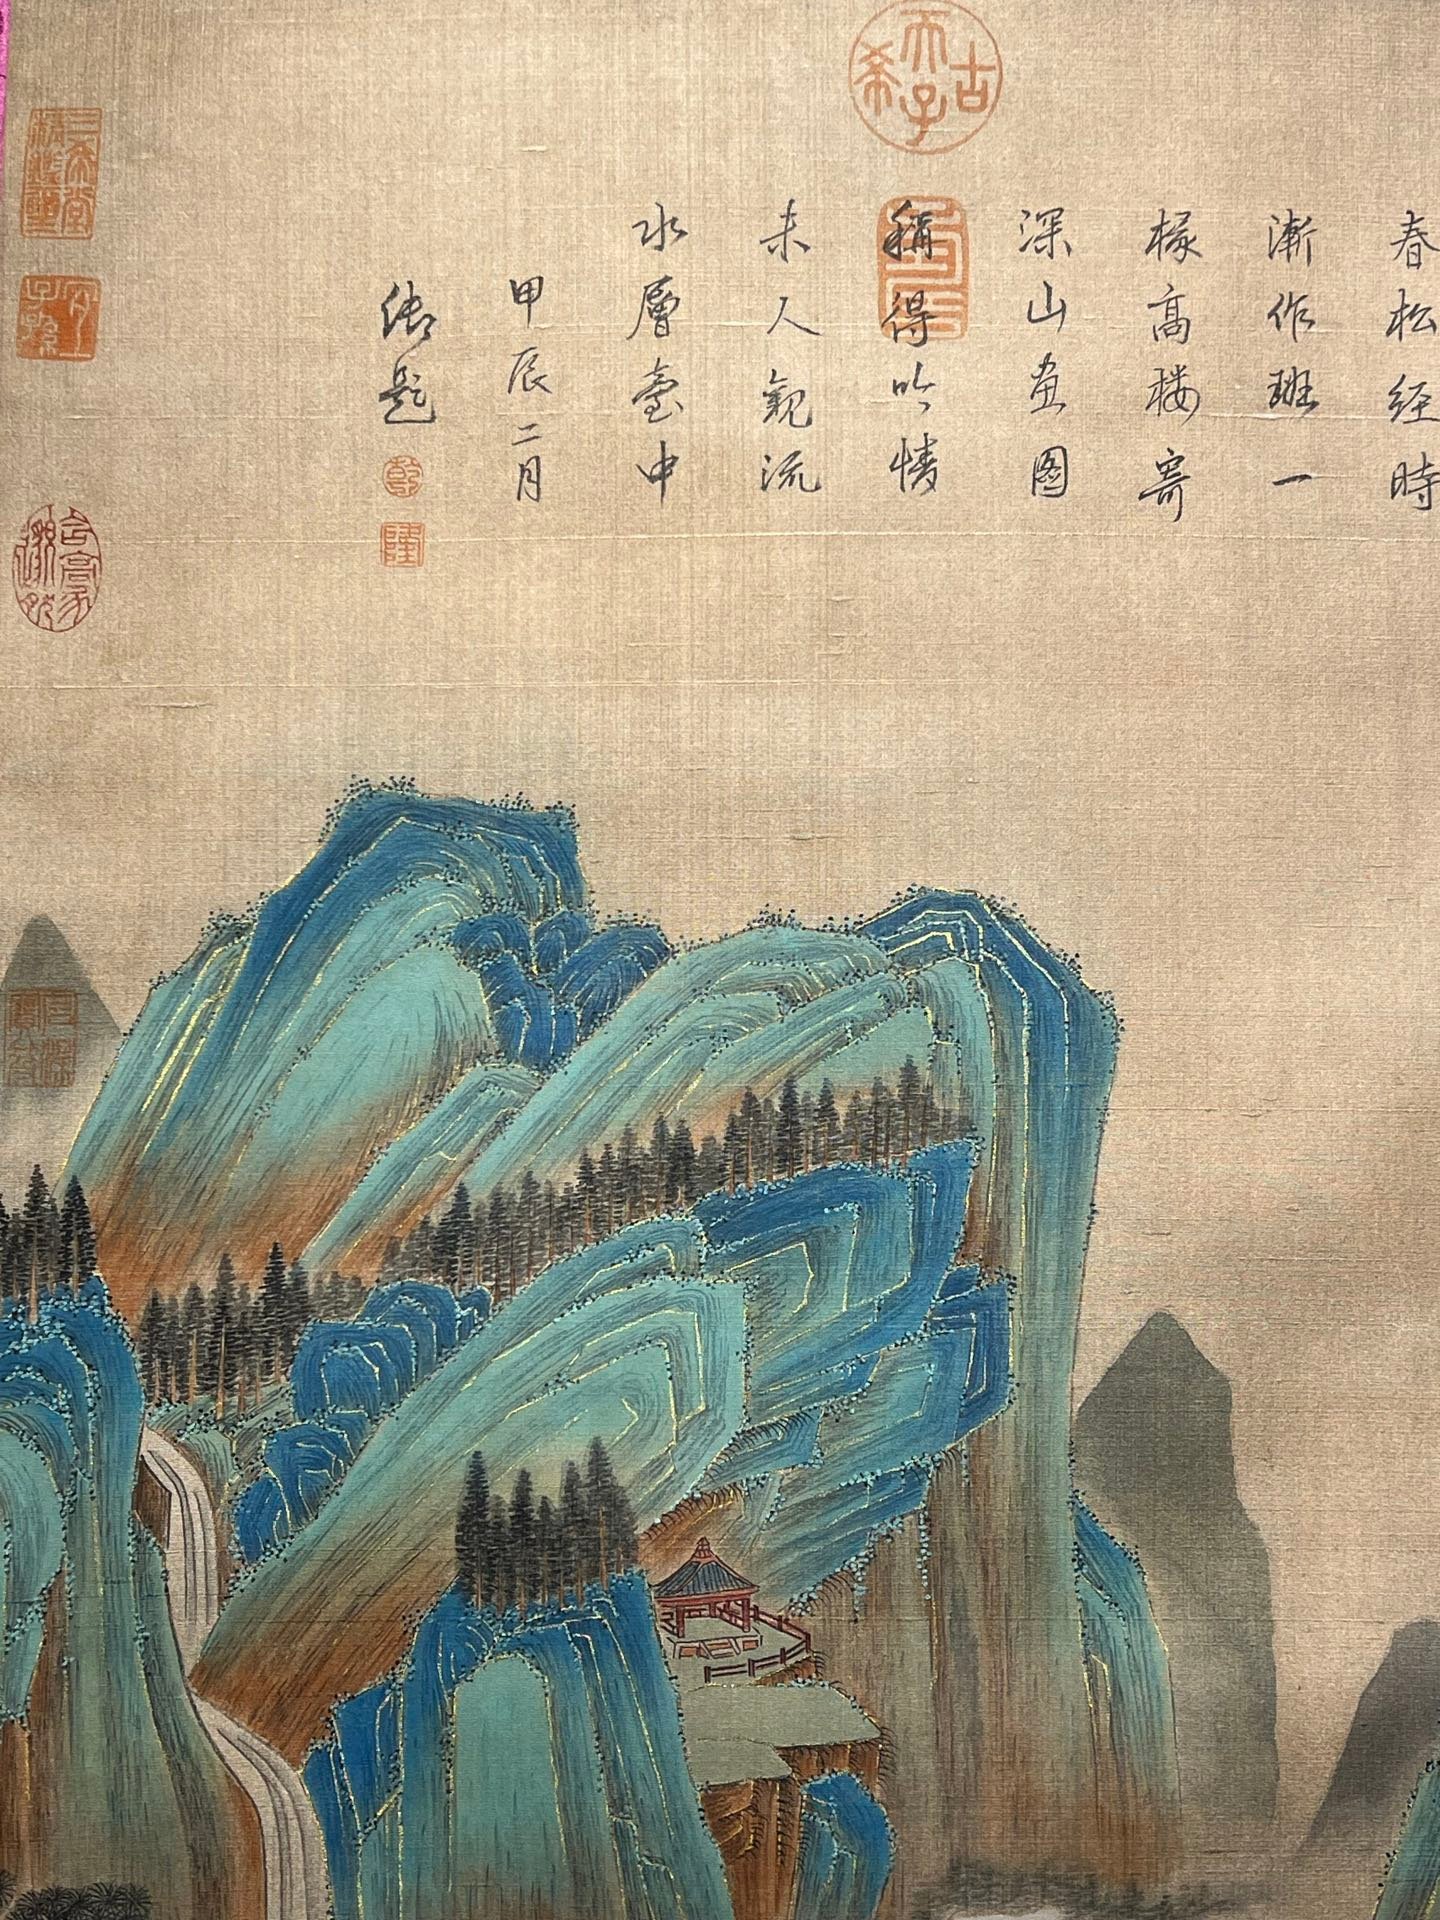 春松经時
漸作班一
椽高楼寄
深山畫图
稱得吟情
未人觀流
水層臺中
甲辰二月
御題
乾
隆
古希天子
三希堂精鑑璽
宜子孫